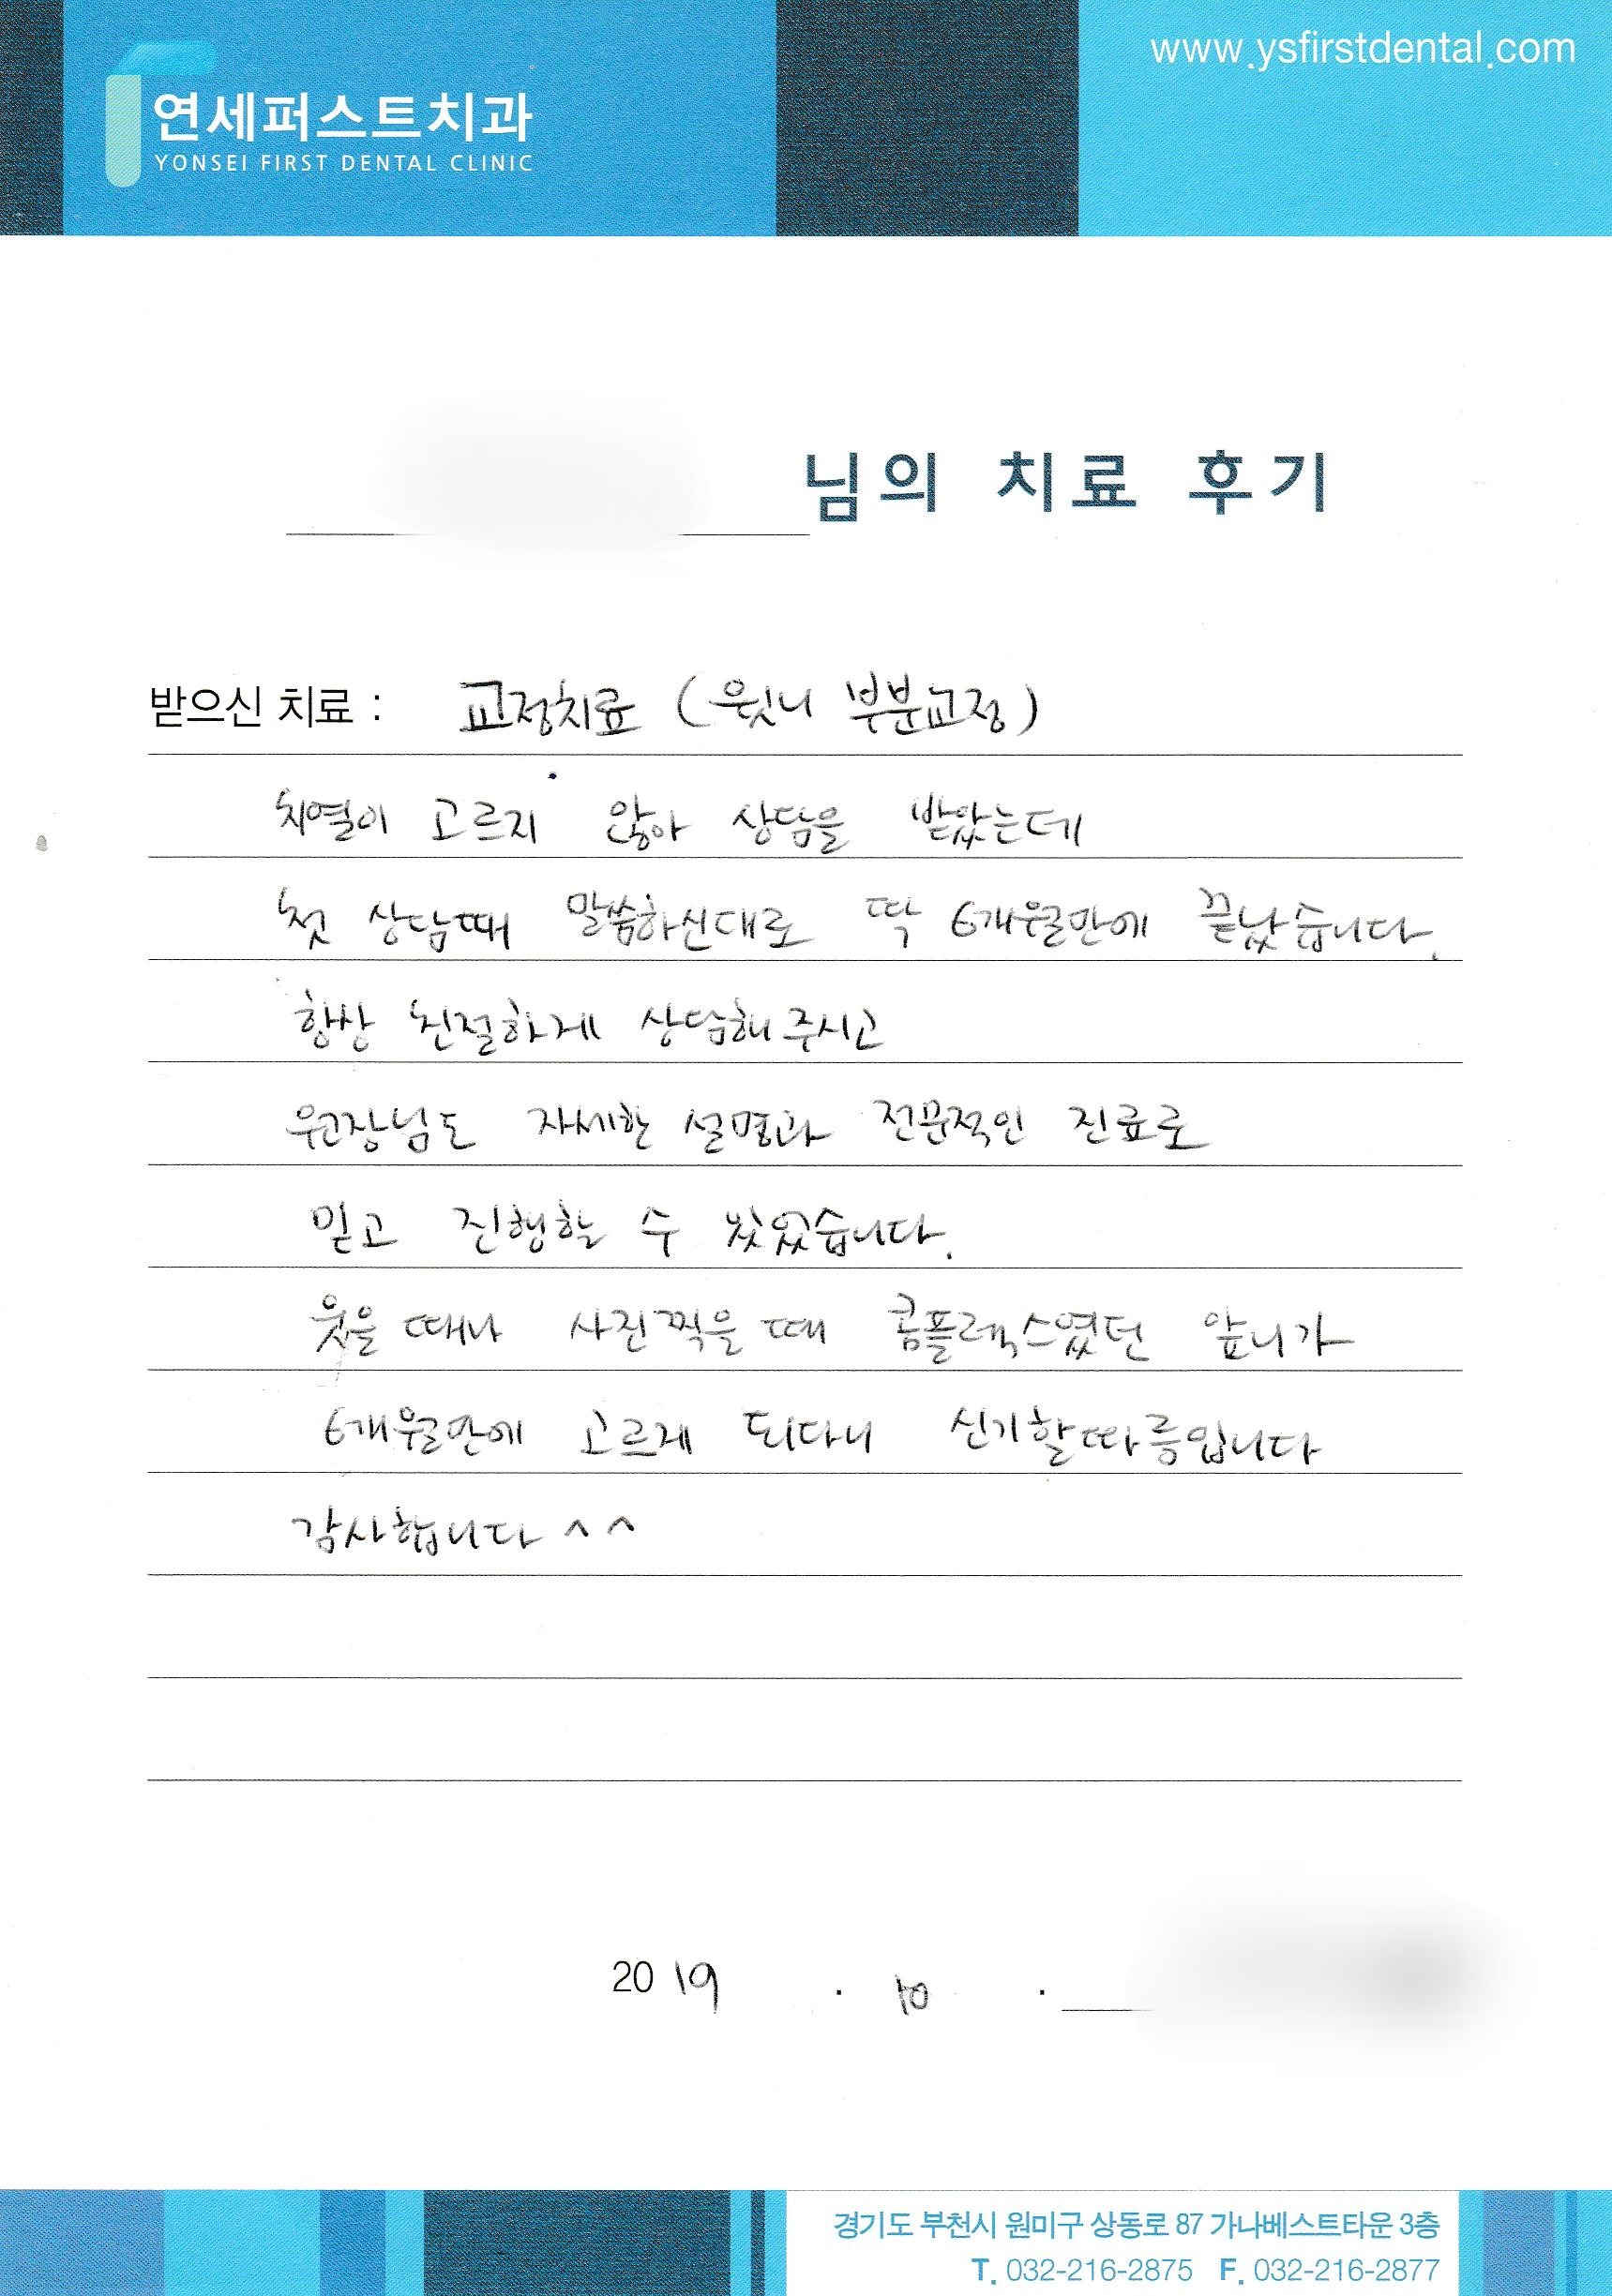 www.ysfirstdental.com
연세퍼스트치과
YONSEI FIRST DENTAL CLINIC
님의 치료 후기
받으신 치료 : 교정치료 (윗니 부분교정)
치열이 고르지 않아 상담을 받았는데
첫 상담때 말씀하신대로 딱 6개월만에 끝났습니다.
항상 친절하게 상담해 주시고
원장님도 자세한 설명과 전문적인 진료로
믿고 진행할 수 있었습니다.
웃을 때나 사진찍을 때 콤플렉스였던 앞니가
6개월만에 고르게 되다니 신기할따름입니다
감사합니다 ^^
2019 . 10 .
경기도 부천시 원미구 상동로 87 가나베스트타운 3층
T. 032-216-2875 F. 032-216-2877